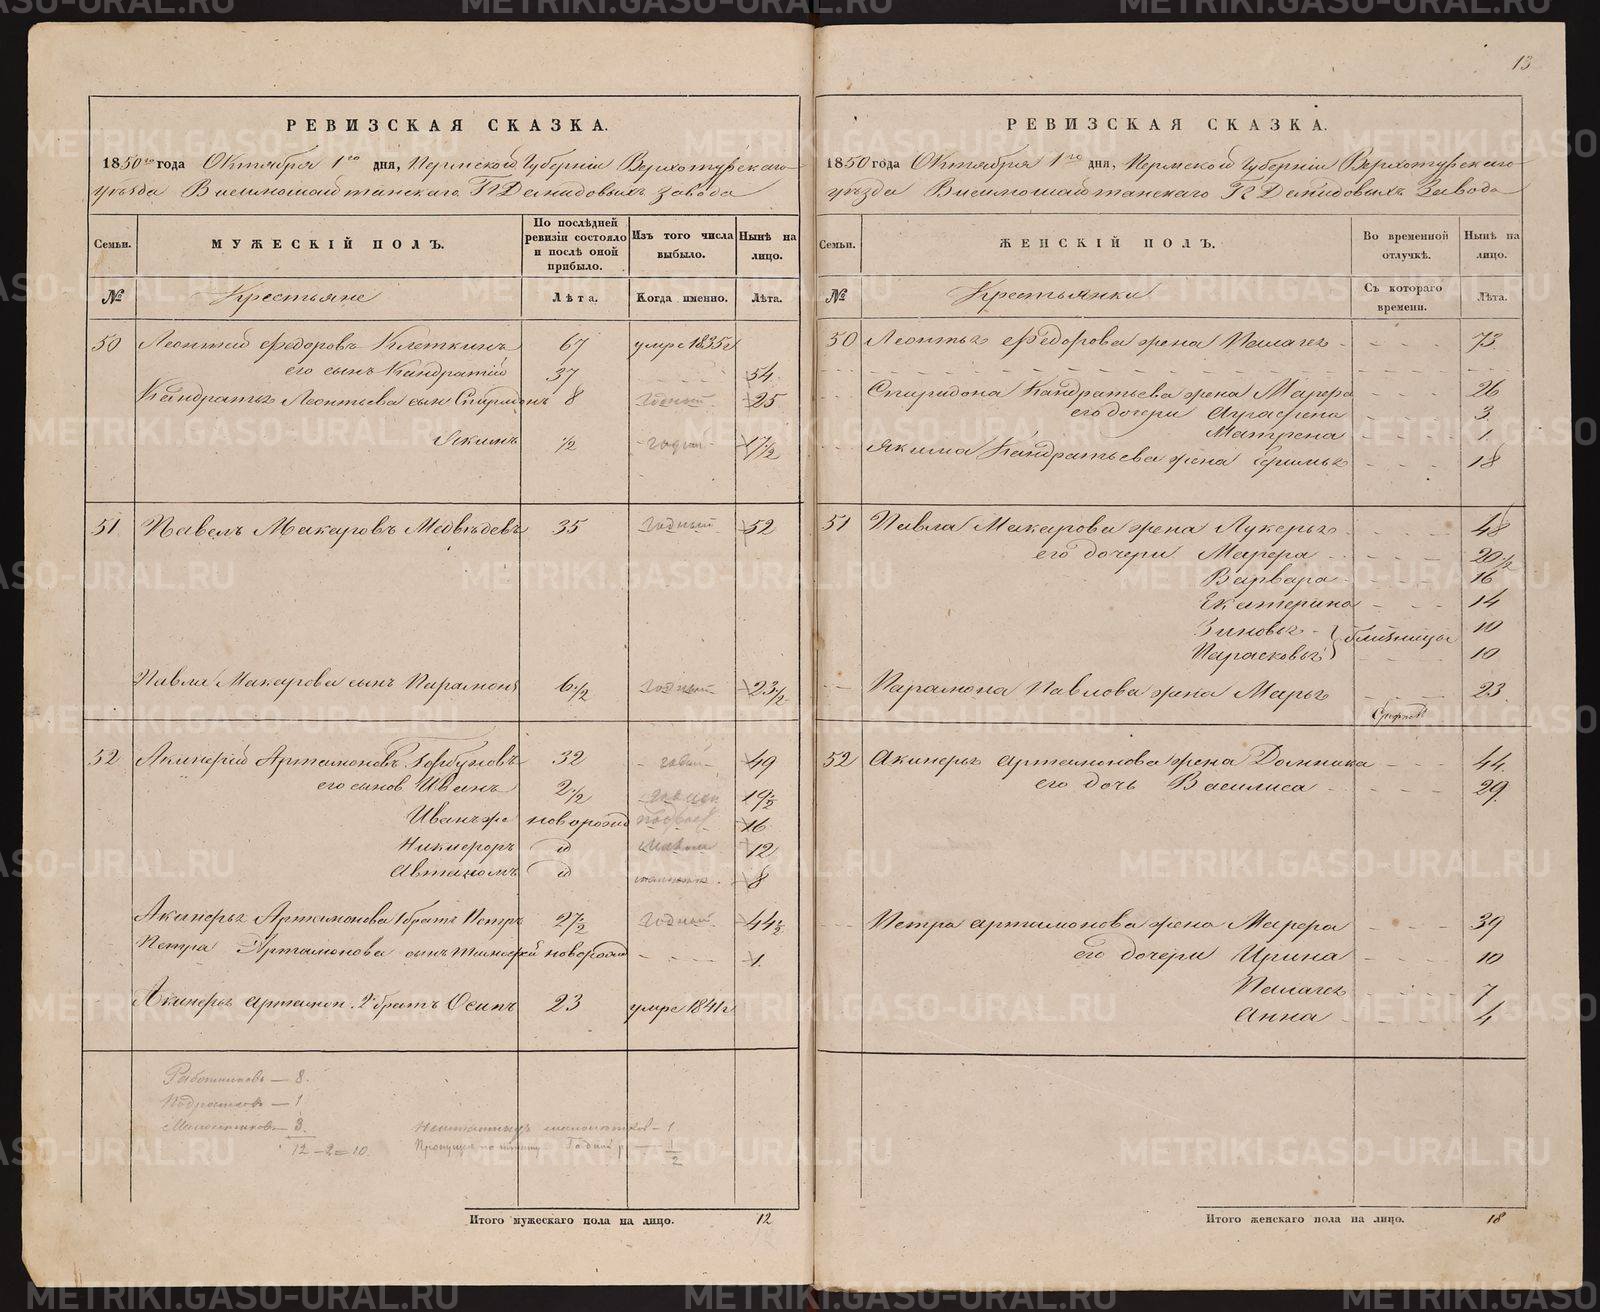 13
РЕВИЗСКАЯ СКАЗКА.
1850го года Октября 1го дня, Пермской Губерніи Верхотурскаго
уѣзда Висимошайтанскаго Гг Демидовыхъ завода
Семьи. МУЖЕСКІЙ ПОЛЪ. По послѣдней ревизіи состояло и послѣ оной прибыло. Изъ того числа выбыло. Нынѣ на лицо.
№ Крестьяне Лѣта. Когда именно. Лѣта.
50 Леонтей Федоровъ Клеткинъ 67 умре 1835г
его сынъ Кандратій 37 - - - 54
Кандратья Леонтьева сын Спиридонъ 8 годный 25
Якимъ ½ годный 17½
51 Павелъ Макаровъ Медвѣдевъ 35 годный 52
Павла Макарова сынъ Парамонъ 6½ годный 23½
52 Акинфій Артамоновъ Горбуновъ 32 годный 49
его сынов Иванъ 2½ 19½
Иванъ же новорожд 16
Никифоръ id 12
Автономъ id 8
Акинфья Артамонова 1 братъ Петръ 27½ годный 44½
Петра Артамонова сынъ Тимофей новорожд - - - 1
Акинфья Артамон. 2й братъ Осипъ 23 умре 1841г
Работниковъ — 8.
Подростковъ — 1
Малолетковъ — 3.
12 - 2 = 10.
1
1
2
Итого мужескаго пола на лицо. 12
РЕВИЗСКАЯ СКАЗКА.
1850 года Октября 1го дня, Пермской Губерніи Верхотурскаго
уѣзда Висимошайтанскаго Гг Демидовыхъ Завода
Семьи. ЖЕНСКІЙ ПОЛЪ. Во временной отлучкѣ. Нынѣ на лицо.
№ Крестьянки Съ котораго времени. Лѣта.
50 Леонтья Федорова жена Палагея - - - 73
Спиридона Кандратьева жена Марфа - - - 26
его дочери Аграфена - - - 3
Матрена - - - 1
Якима Кандратьева жена - - - 18
51 Павла Макарова жена Лукерья - - - 48
его дочери Марфа - - - 20½
Варвара - - - 16
Екатерина - - - 14
Зиновья } близницы 10
Парасковья } 10
Парамона Павлова жена Марья - - - 23
52 Акинфья Артамонова жена Домника - - - 44
его дочь Василиса - - - 29
Петра Артамонова жена Марфа - - - 39
его дочери Ирина - - - 10
Палагея - - - 7
Анна - - - 4
Итого женскаго пола на лицо. 18
METRIKI.GASO-URAL.RU